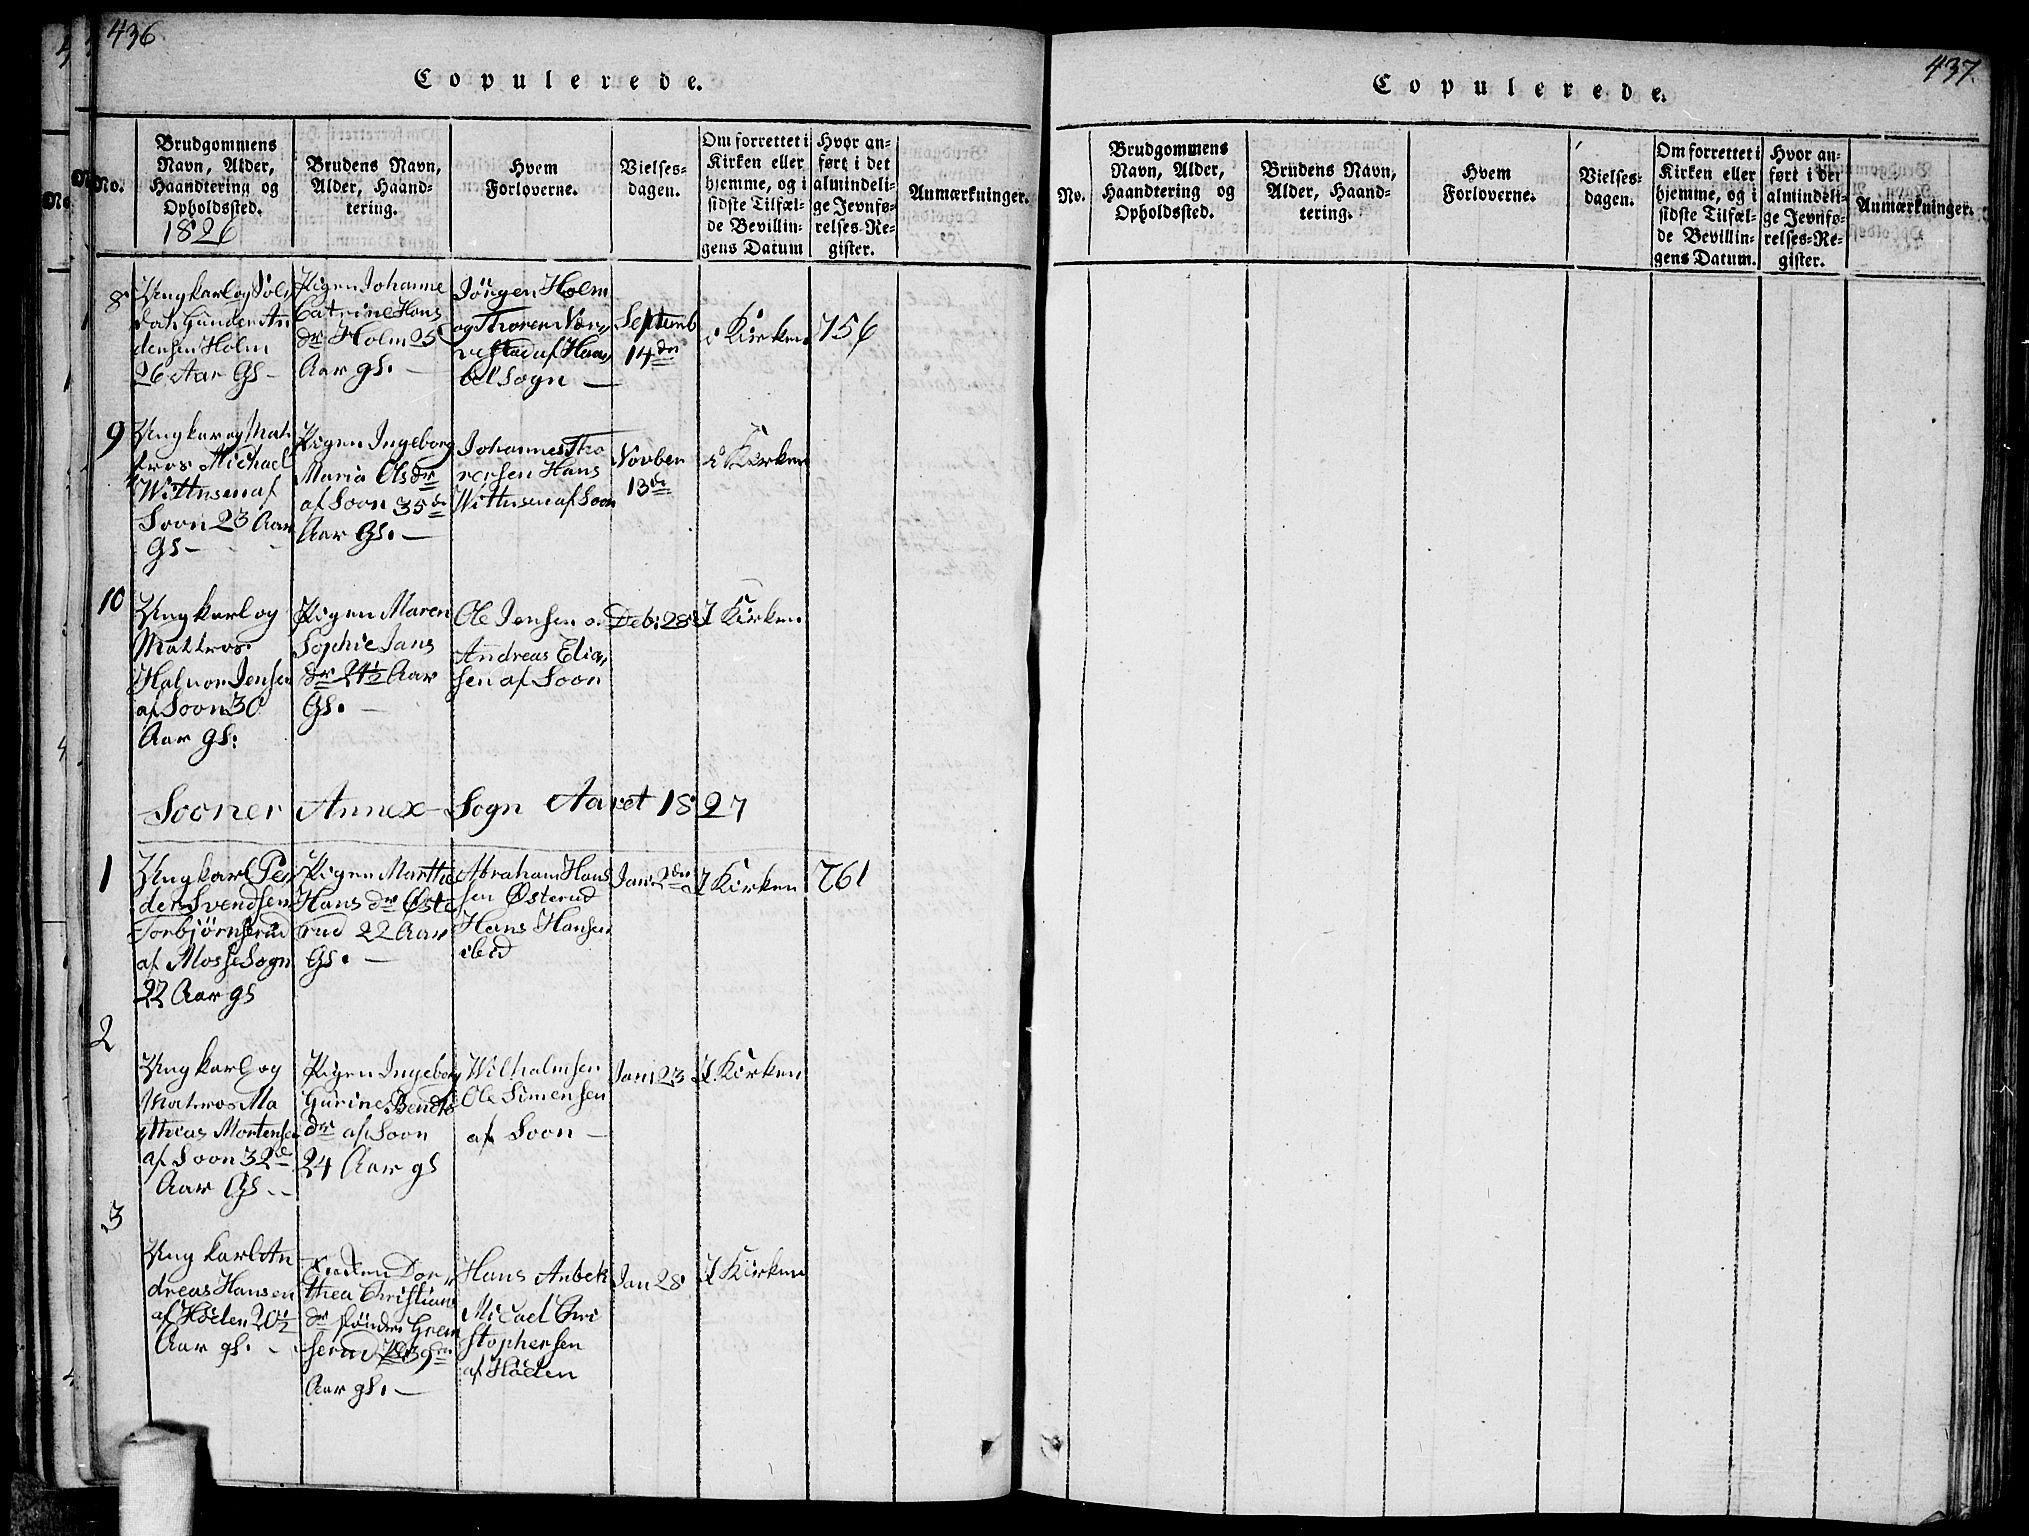 436
Copulerede.
No.
Brudgommens
Navn, Alder,
Haandtering og
Opholdssted.
1826
Brudens Navn,
Alder, Haand-
tering.
Hvem
Forloverne.
Vielses-
dagen.
Om forrettet i
Kirken eller
hjemme, og i
sidste Tilfæl-
de Bevillin-
gens Datum
Hvor an-
ført i det
almindeli-
ge Jevnfø-
relses-Re-
gister.
Anmærkninger.
8
Ungkarl og Sol,
dat Gunder An
densen Holm
26 Aar Gs-
Pigen Johanne
Catrine Hans
dr Holm 25
Aar gs. -
Jörgen Holm
og Thoren
af
Sogn -
Septemb
14de
i Kirken
756
9
Ungkar og Mat,
tros Michael
Wittusen af
Soon 23 Aar
Gs -
Pigen Ingeborg
Maria Olsdr
af Soon 35de
Aar Gs. -
Johannes Tho
resen Hans
Wittusen af Soon
Novber
13de
i Kirken
10
Ungkarl og
Mattros
Halvor Jensen
af Soon 30
Aar gs:
Pigen Maren
Sophie Jans
dr 24½ Aar
Gs. -
Ole Jensen o.
Andreas Elia,
sen af Soon
Deb: 28
I Kirken
Sooner Annex- Sogn Aaret 1827
1
Ungkarl Pe
der Svendsen
Torbjørnsrud
af Mosse Sogn
22 Aar gs
Pigen Marthe
Hans dr Øste
rud 22 Aar
Gs. -
Abraham Han
sen Østerud
Hans Hansen
ibid
Jan: 2den
I Kirken
761
2
Ungkarl og
Matros Ma
thias Mortensen
af Soon 32de
Aar Gs --
Pigen Ingeborg
Gurine Bendts
dr af Soon
24 Aar gs
Wilhalmsen
Ole Simensen
af Soon -
Jan: 23
I Kirken
3
Ung karl An
dreas Hansen
af Hølen 20½
Aar gs. -
Enken Dor,
thea Christians
dr
39
Aar gs. -
Hans Anbek
Micael Chri
stophersen
af Hølen
Jan 28
I Kirken
437
Copulerede.
No.
Brudgommens
Navn, Alder,
Haandtering og
Opholdssted.
Brudens Navn,
Alder, Haand-
tering.
Hvem
Forloverne.
Vielses-
dagen.
Om forrettet i
Kirken eller
hjemme, og i
sidste Tilfæl-
de Bevillin-
gens Datum.
Hvor an-
ført i det
almindeli-
ge Jevnfø-
relses-Re-
gister.
Anmærkninger.